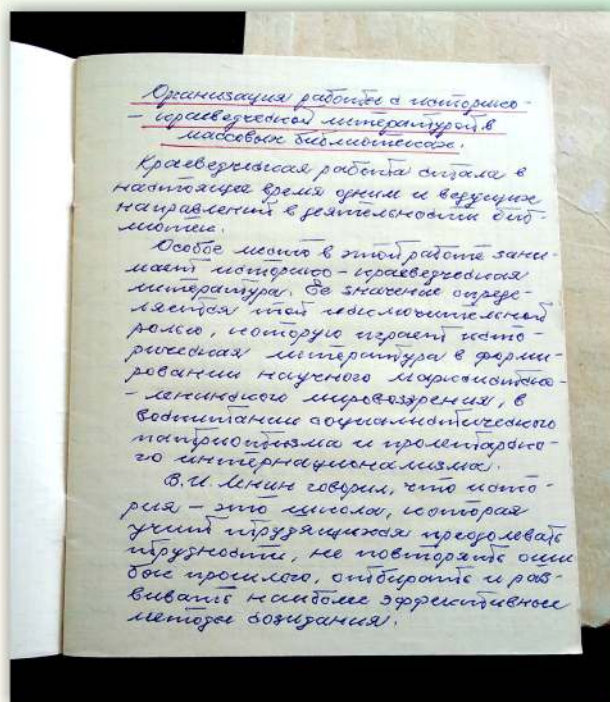 Организация работы с историко -
- краеведческой литературой в
массовых библиотеках.
Краеведческая работа стала в
настоящее время одним и ведущих
направлений в деятельности биб-
лиотек.
Особое место в этой работе зани-
мает историко - краеведческая
литература. Её значение опреде-
ляется той исключительной
ролью, которую играет исто-
рическая литература в форми-
ровании научного марксистско-
- ленинского мировоззрения, в
воспитании социалистического
патриотизма и пролетарско-
го интернационализма.
В.И. Ленин говорил, что исто-
рия - это школа, которая
учит трудящихся преодолевать
трудности, не повторять оши
бок прошлого, отбирать и раз-
вивать наиболее эффективные
методы созидания.